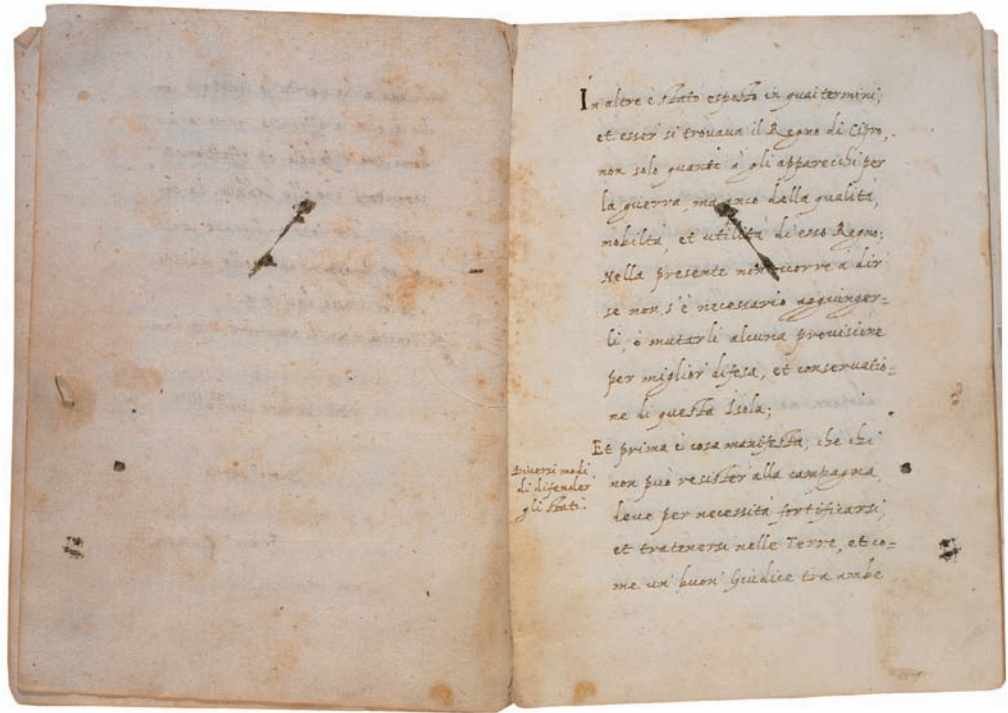 In altre è stato esposto in quai termini,
et esser si trouaua il Regno di Cipro,
non solo quanto à gli apparecchi per
la guerra, ma anco della qualità,
nobiltà, et utilità di esso Regno;
Nella presente non occorre à dir
se non s'è necessario aggiunger=
li, ò mutarli alcuna prouisione
per miglior difesa, et conseruatio=
ne di questa Isola;
Et prima è cosa manifesta, che chi
non può resister alla campagna,
deue per necessità fortificarsi,
et tratenersi nelle Terre, et co=
me un buon Giudice tra ambe
Diuersi modi
di difender
gli stati.